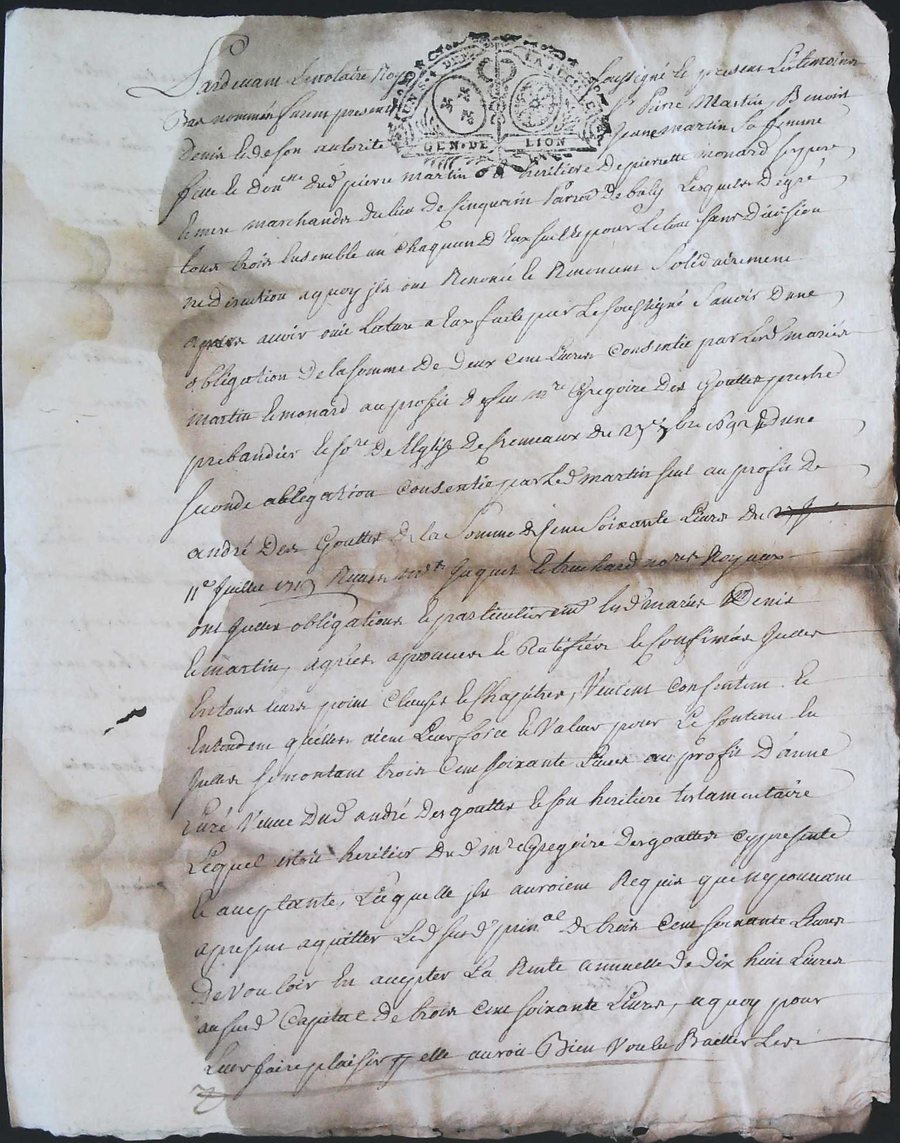 UN S. 4 DEN. LA FEUILLE
GEN. DE LION
Pardevant le notaire Roy soussigné et present les temoins
bas nommés furent presents Sr Pierre Martin, Benoit
Denis et de son autorité Jeane martin sa femme
fille et don dud pierre martin et heritiere de pierrette monard ses pere
et mere marchands du lieu de Cinquam Parroi de lesquels de gré
tous trois ensemble un chaquun d'eux seul et pour le tout sans division
ne discution a quoy ils ont Renoncé et Renoncent solidairement
apres avoir ouie lecture a eux faite par le soussigné savoir d'une
obligation de la somme de deux cent livres consentie par lesd mariés
martin et monard au profit de feu mre Gregoire des Gouttes prestre
prebandier et so.re de l'Eglise de Cremeaux du 23 7bre 1692 & d'une
seconde obligation consentie par led martin seul au profit de
andré Des Gouttes de la somme de cent soixante livres du
11e Juillet Jaques et truchard nores Royaux
ont Jcelles obligations et particulierement lesd mariés Denis
et martin, agréés aprouvées et Ratifiées et confirmées Jcelles
en tous leurs point clauses et chapitres, veulent consentent et
entendent qu'elles aient leur force et valeur pour le contenu en
Jcelles se montant trois cent soixante livres au profit d'anne
Curé veuve dud andré Desgouttes et son heritiere testamentaire
lequel estoit heritier dud mre Gregoire Desgouttes cy presente
et aceptante, laquelle ils auroient Requis que ne pouvant
a present aquitter led susd prin.al de trois cent soixante livres
de vouloir en accepter la Rente annuelle de dix huit livres
au susd Capital de trois cent soixante livres, a quoy pour
leur faire plaisir elle auroit Bien voulu